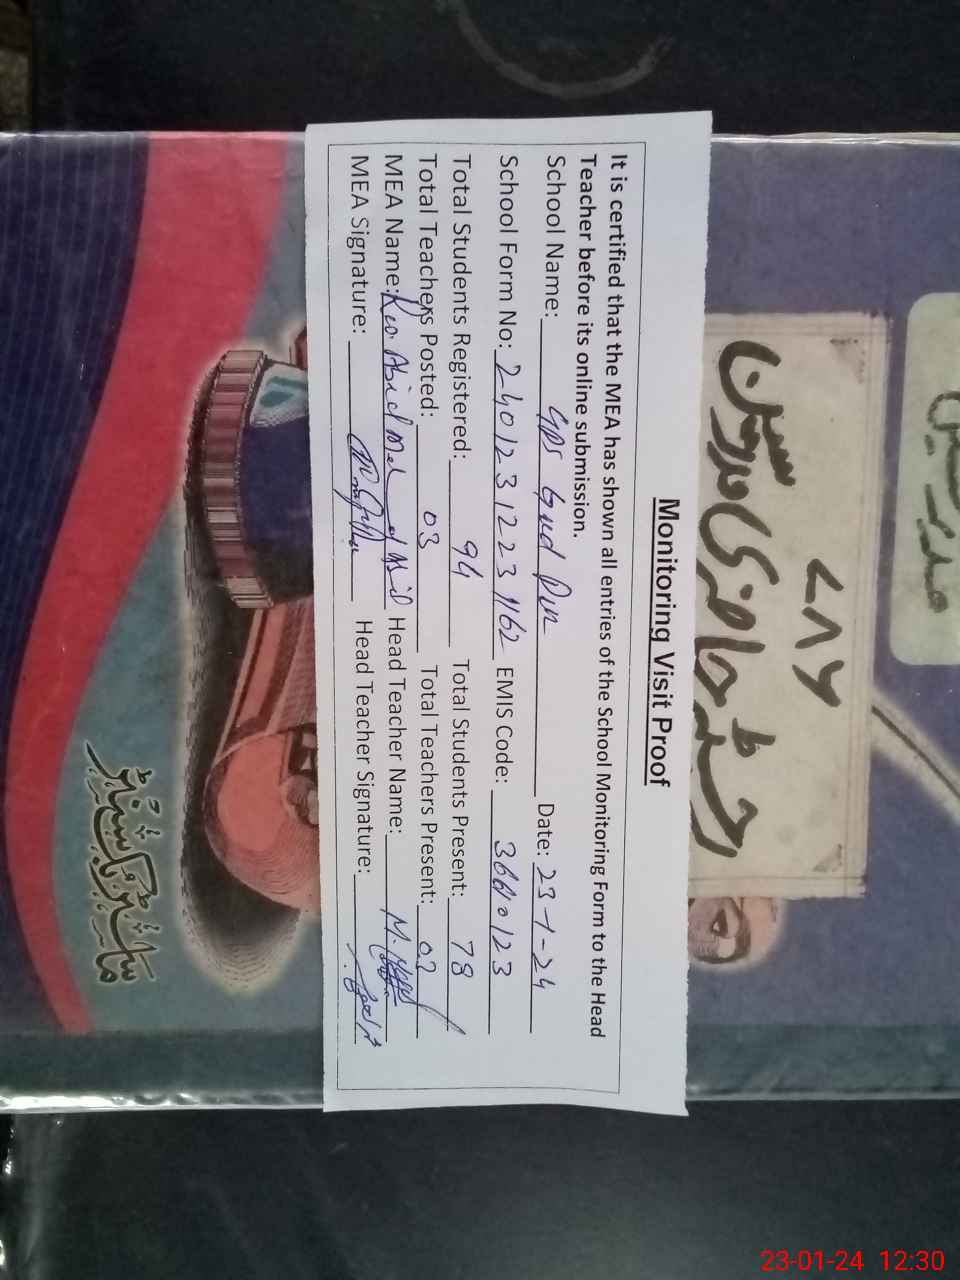 ۷۸۶
رجسٹر حاضری مدرسین
Monitoring Visit Proof
It is certified that the MEA has shown all entries of the School Monitoring Form to the Head
Teacher before its online submission.
School Name: GPS Gud Pur Date: 23-1-24
School Form No: 24012312231162 EMIS Code: 36610123
Total Students Registered: 94 Total Students Present: 78
Total Teachers Posted: 03 Total Teachers Present: 03
MEA Name: Abid Head Teacher Name: M.
MEA Signature: Head Teacher Signature:
ماسٹر بک سنٹر
23-01-24 12:30